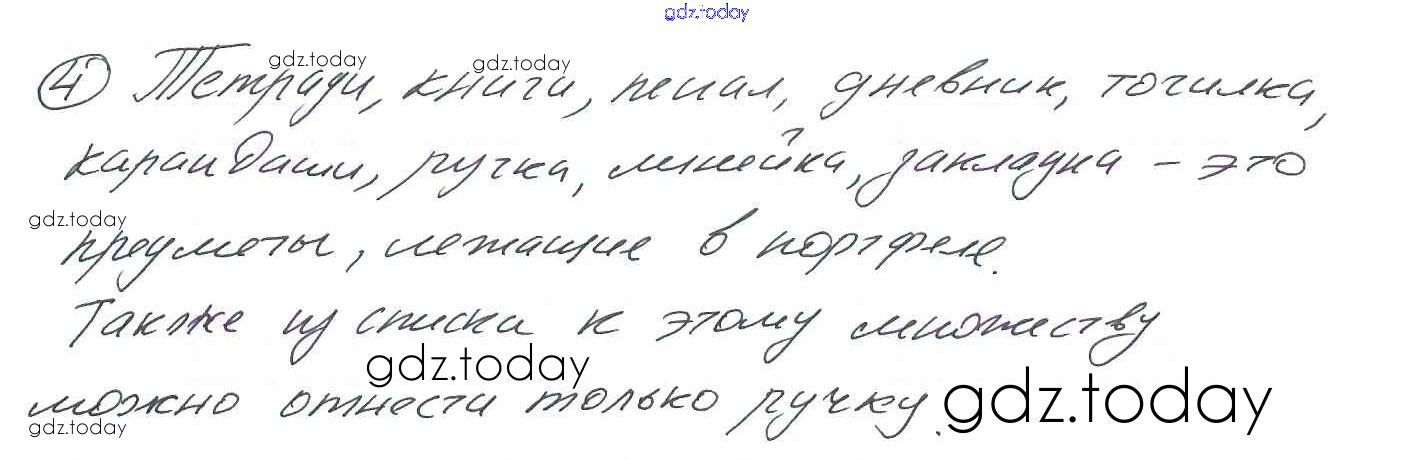 gdz.today
gdz.today gdz.today
④ Тетради, книги, пенал, дневник, точилка,
карандаши, ручка, линейка, закладка – это
gdz.today
предметы, лежащие в портфеле.
Также из списка к этому множеству
gdz.today gdz.today
можно отнести только ручку.
gdz.today